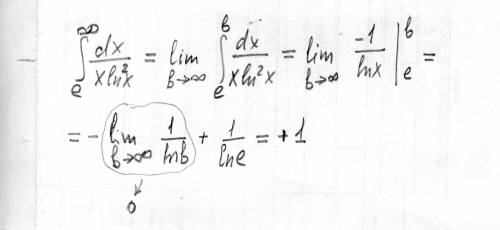 ∫_e^∞ dx/(x ln²x) = lim_{b→∞} ∫_e^b dx/(x ln²x) = lim_{b→∞} -1/(ln x) |_e^b =
= - lim_{b→∞} 1/(ln b) + 1/(ln e) = +1
↓
0